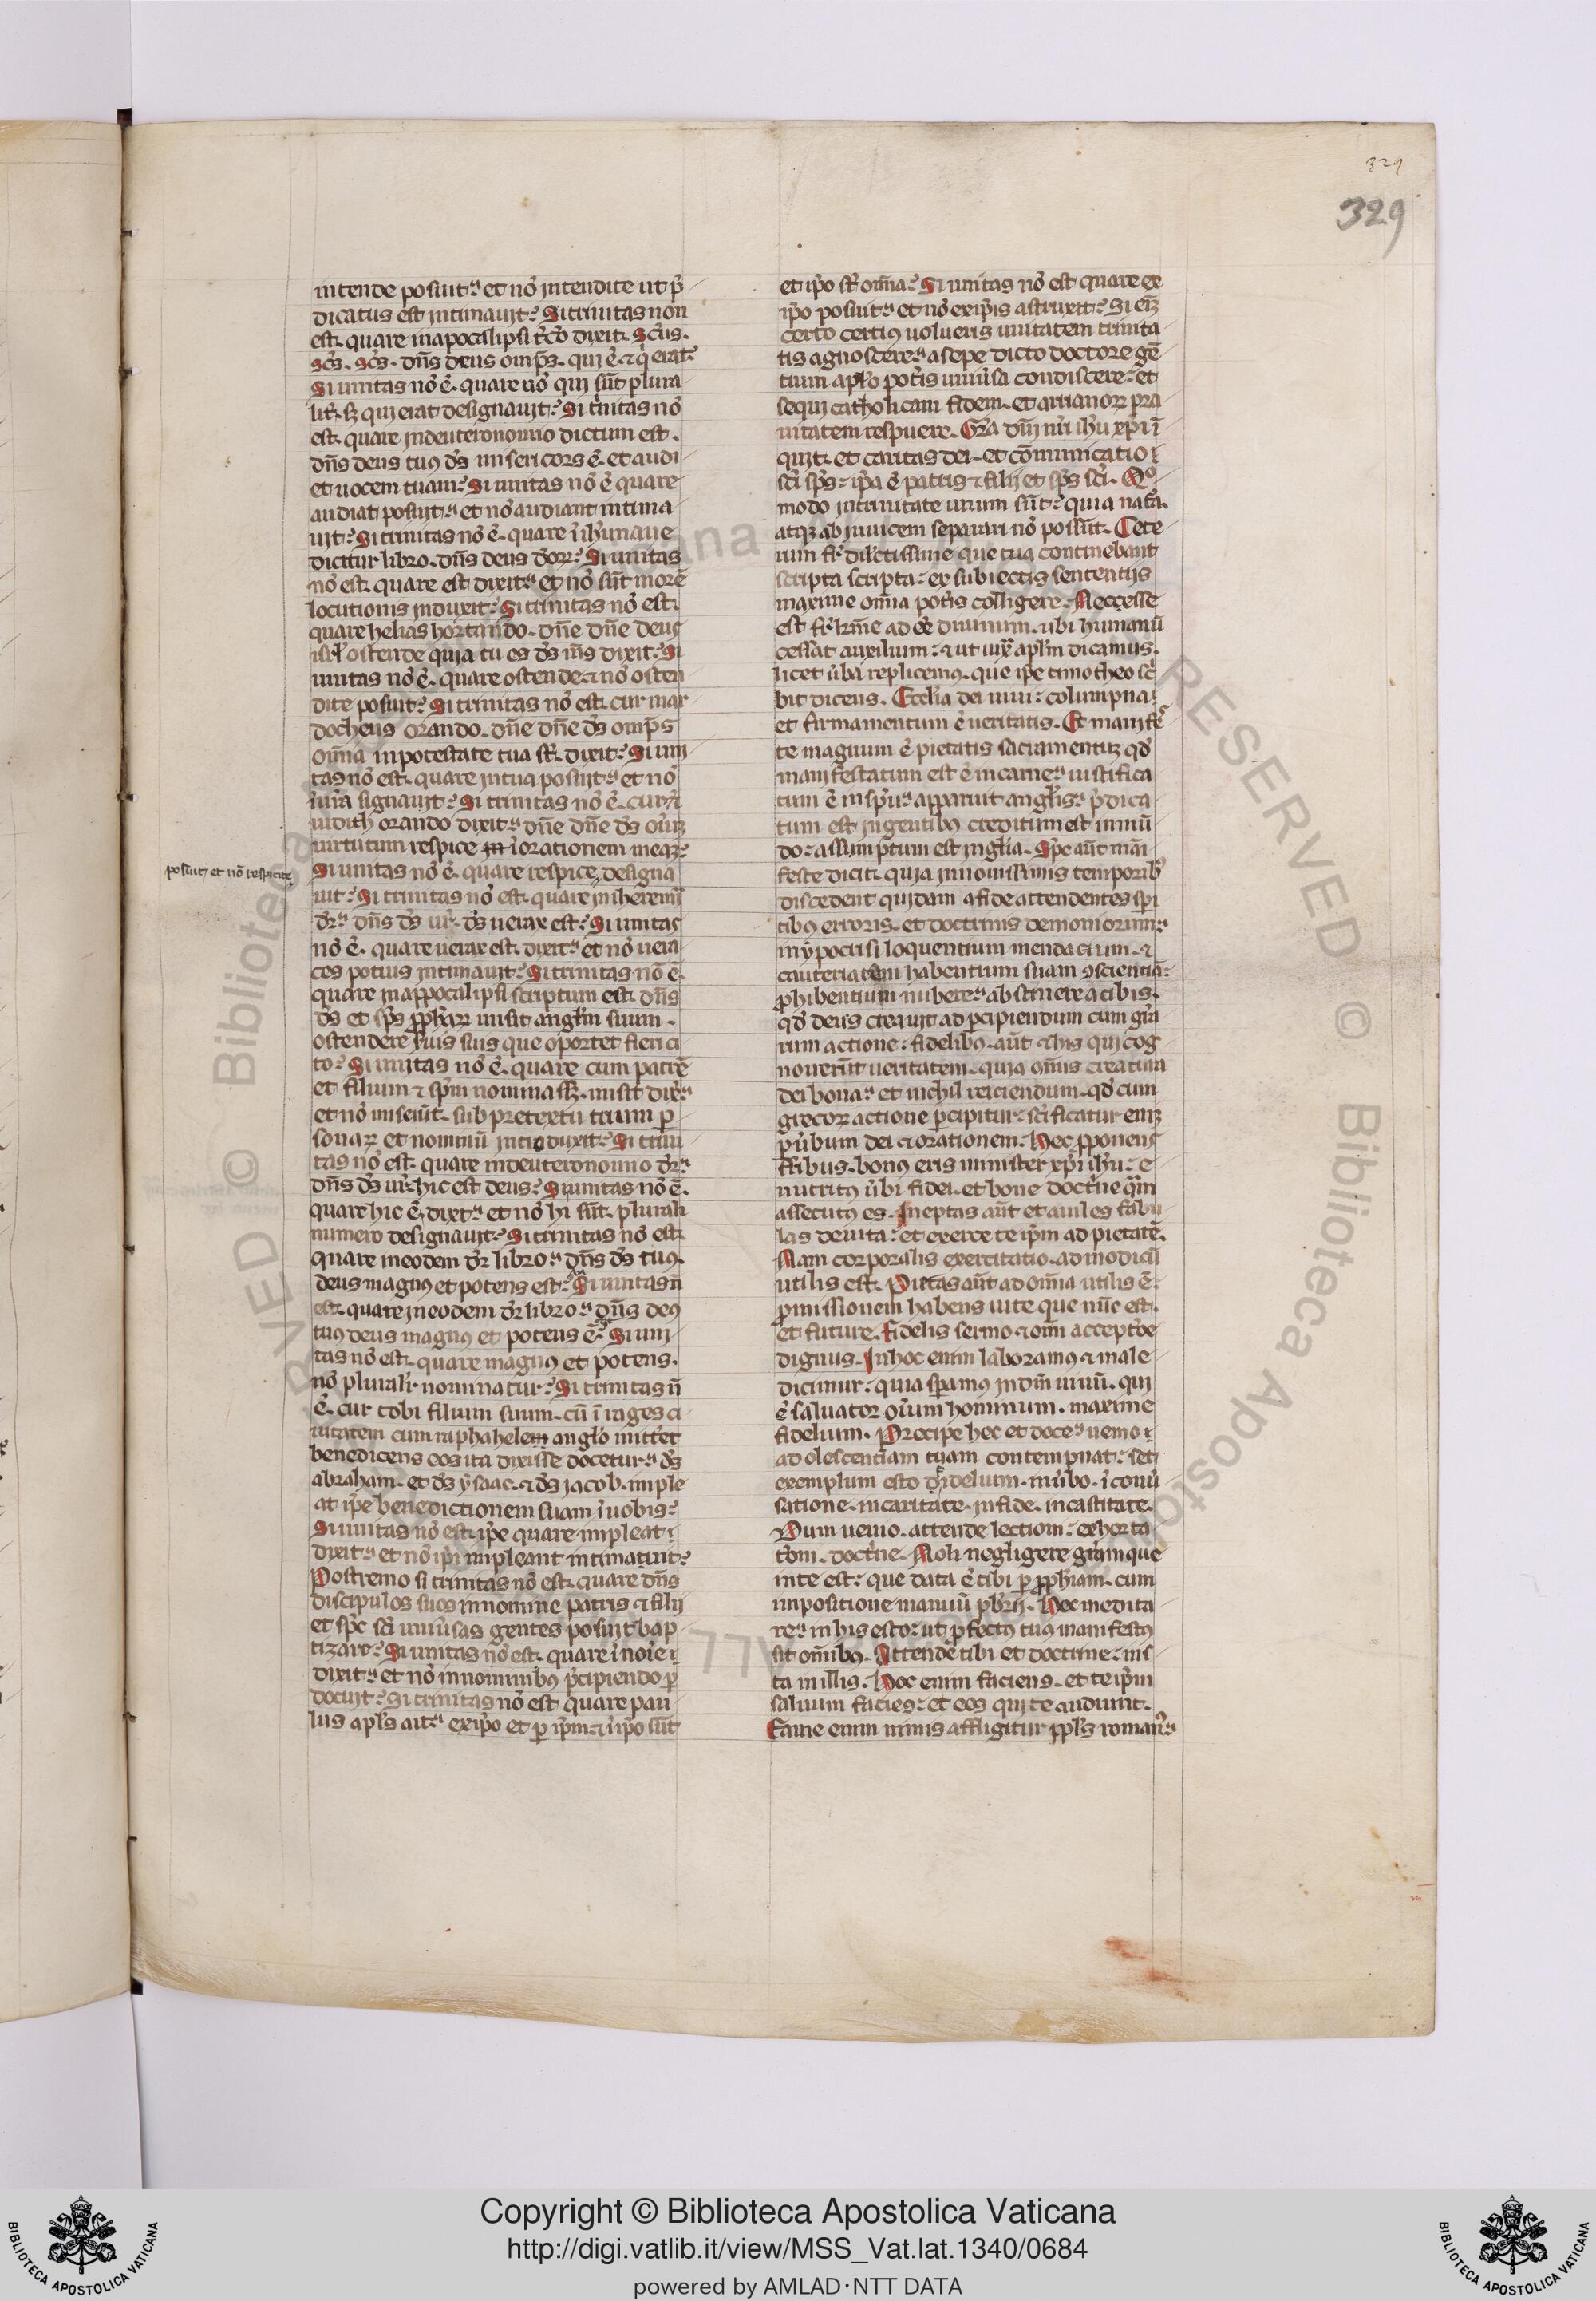 329
329
intende posuit et nō intendite ut p̄
dicatus est intimauit. Si trinitas non
est. quare in apocalipsi t̄cō dixit. Scūs.
scs̄. scs̄. dn̄s deus omp̄s. qui ē. ⁊ q̇ erat.
Si unitas nō ē. quare nō qui sūt plura
lit̄. sꝫ qui erat designauit. Si trinitas nō
est. quare in deuteronomio dictum est.
dn̄s deus tuꝰ ds̄ misericors ē. et audi
et uocem tuam. Si unitas nō ē quare
audiat posuit. et nō audiant intima
uit. Si trinitas nō ē. quare ī
dicitur libro. dn̄s deus Si unitas
nō est. quare est dixit. et nō sūt morē
locutionis induxit. Si trinitas nō est.
quare helias hortando. dn̄e dn̄e deus
isrl̄ ostende quia tu es ds̄ dixit. Si
unitas nō ē. quare ostende. ⁊ nō osten
dite posuit. Si trinitas nō est. cur mar
docheus orando. dn̄e dn̄e ds̄ omp̄s
om̄a in potestate tua st̄. dixit. Si uni
tas nō est. quare in tua posuit. et nō
ur̄a signauit. Si trinitas nō ē. cur
iudith orando dixit. dn̄e dn̄e ds̄ om̄ıꝫ
uirtutum respice ī orationem meaꝫ.
posuit, et nō respicite
Si unitas nō ē. quare respice designa
uit. Si trinitas nō est. quare in heremia
dr̄. dn̄s ds̄ ur̄. ds̄ uerax est. Si unitas
nō ē. quare uerax est. dixit. et nō uera
ces potius intimauit. Si trinitas nō ē.
quare in appocalipsi scriptum est. dn̄s
ds̄ et sps̄ ꝓphaꝝ misit angl̄m suum.
ostendere seruis suis que oportet fieri ci
to. Si unitas nō ē. quare cum patrē
et filium ⁊ sp̄m nominass̄. misit dix̄.
et nō miserūt. sub pretextu trium ꝑ
sonaꝝ et nominū introduxit. Si trini
tas nō est. quare in deuteronomio dr̄.
dn̄s ds̄ ur̄. hic est deus. Si unitas nō ē.
quare hic ē. dixit. et nō hi sūt. plurali
numero designauit. Si trinitas nō est.
quare in eodem dr̄ libro. dn̄s ds̄ tuꝰ.
deus magnꝰ et potens est. Si unitas n̄
est. quare in eodem dr̄ libro. dn̄s deꝰ
tuꝰ deus magnꝰ et potens ē. Si uni
tas nō est. quare magnꝰ et potens.
nō plural̄r nominatur. Si trinitas n̄
ē. cur tobi filium suum. cū ī rages ci
uitatem cum raphahele anglo mitt̄et
benedicens eos ita dixisse docetur. ds̄
abraham. et ds̄ ysaac. ⁊ ds̄ jacob. imple
at ip̄e benedictionem suam ī uobis.
Si unitas nō est. ip̄e quare impleat
dixit. et nō ip̄i impleant intimauit.
Postremo si trinitas nō est. quare dn̄s
discipulos suos in nomine patris ⁊ filij
et sps̄ sc̄i uniūsas gentes posuit bap
tizare. Si unitas nō est. quare ī noīe
dixit. et nō in nominibꝰ p̄cipiendo ꝑ
docuit. Si trinitas nō est quare pau
lus apl̄s ait. ex ip̄o et ꝑ ip̄m. ⁊ ī ip̄o sūt
et ip̄o st̄ om̄a. Si unitas nō est quare ex
ip̄o posuit. et nō ex ip̄is astruxit. Si eıꝫ
certo certiꝰ uolueris unitatem trinita
tis agnoscere. a sepe dicto doctore gē
tium aplō pot̄is uniūsa condiscere. et
sequi catholicam fidem. et arrianoꝝ pra
uitatem respuere. Gr̄a dn̄i nr̄i ih̄u xp̄i ī
quit. et caritas dei. et cōmunicatio
sc̄i sps̄. ip̄a ē patris ⁊ filij et sps̄ sc̄i. Qo
modo in trinitate unum sūt. quia nat̄a.
atqꝫ ab inuicem separari nō possūt. Cete
rum fr̄ dil̄ctissime que tua continebant
scripta scripta. ex subiectis sententijs
maxime om̄ia pot̄is colligere. Neccesse
est fr̄ km̄e ad ēē diuinum. ubi humanū
cessat auxilium. ⁊ ut apl̄m dicamus.
licet ūba replicemꝰ. que ip̄e timotheo sc̄
bit dicens. Eccl̄ia dei uiui. columpna
et firmamentum ē ueritatis. Et manifes
te magnum ē pietatis sacramentuꝫ qd̄
manifestatum est ē in carne. iustifica
tum ē in sp̄u. apparuit angl̄is. p̄dica
tum est in gentibꝰ creditum est in mū
do. assumptum est in gl̄ia. Sp̄c aūt māi
feste dicit. quia in nouissimis temporibꝰ
discedent quidam a fide attendentes sp̄i
tibꝰ erroris. et doctrinis demoniorum.
in ypocrisi loquentium mendacium. ⁊
cauteriatam habentium suam ꝯscientiā.
ꝓhibentium nubere. abstinere a cibis.
qd̄ deus creauit ad ꝑcipiendum cum gr̄a
rum actione. fidelibꝰ. aūt ⁊ his qui cog
nouerūt ueritatem. quia om̄is creatura
dei bona. et nichil reiciendum. qd̄ cum
grecoꝝ actione ꝑcipitur. sc̄ificatur eıꝫ
ꝑ ūbum dei ⁊ orationem. Hec ꝓponens
fr̄ibus. bonꝰ eris minister xp̄i ih̄u. e
nutritꝰ ūbi fidei. et bone doct̄ne qm̄
assecutꝰ es. Ineptas aūt et aniles fabu
las deuita. et exerce te ip̄m ad pietatē.
Nam corporalis exercitatio. ad modicū
utilis est. Pietas aūt ad om̄ia utilis ē.
ꝓmissionem habens uite que nūc est.
et future. Fidelis sermo ⁊ om̄i accept̄oe
dignus. In hoc enim laboramꝰ ⁊ male
dicimur. quia speramꝰ in dm̄ uiuū. qui
ē saluator om̄ium hominum. maxime
fidelium. Precipe hec et doce. nemo
adolescentiam tuam contempnat. set
exemplum esto fidelium. in ūbo. ī conū
satione. in caritate. in fide. in castitate.
Dum uenio. attende lectioni. exhorta
t̄oni. doct̄ne. Noli negligere gr̄am que
in te est. que data ē tibi ꝑ ꝓph̄iam. cum
impositione manuū pb̄rij. Hec medita
re. in his esto. ut ꝓfectꝰ tuꝰ manifestꝰ
sit om̄ibꝰ. Attende tibi et doctrine. ins
ta in illis. Hoc enim faciens. et te ip̄m
saluum facies. et eos qui te audiunt.
Fame enim nimis affligitur ppl̄s romanꝰ
Copyright © Biblioteca Apostolica Vaticana
http://digi.vatlib.it/view/MSS_Vat.lat.1340/0684
powered by AMLAD·NTT DATA
BIBLIOTECA APOSTOLICA VATICANA
BIBLIOTECA APOSTOLICA VATICANA